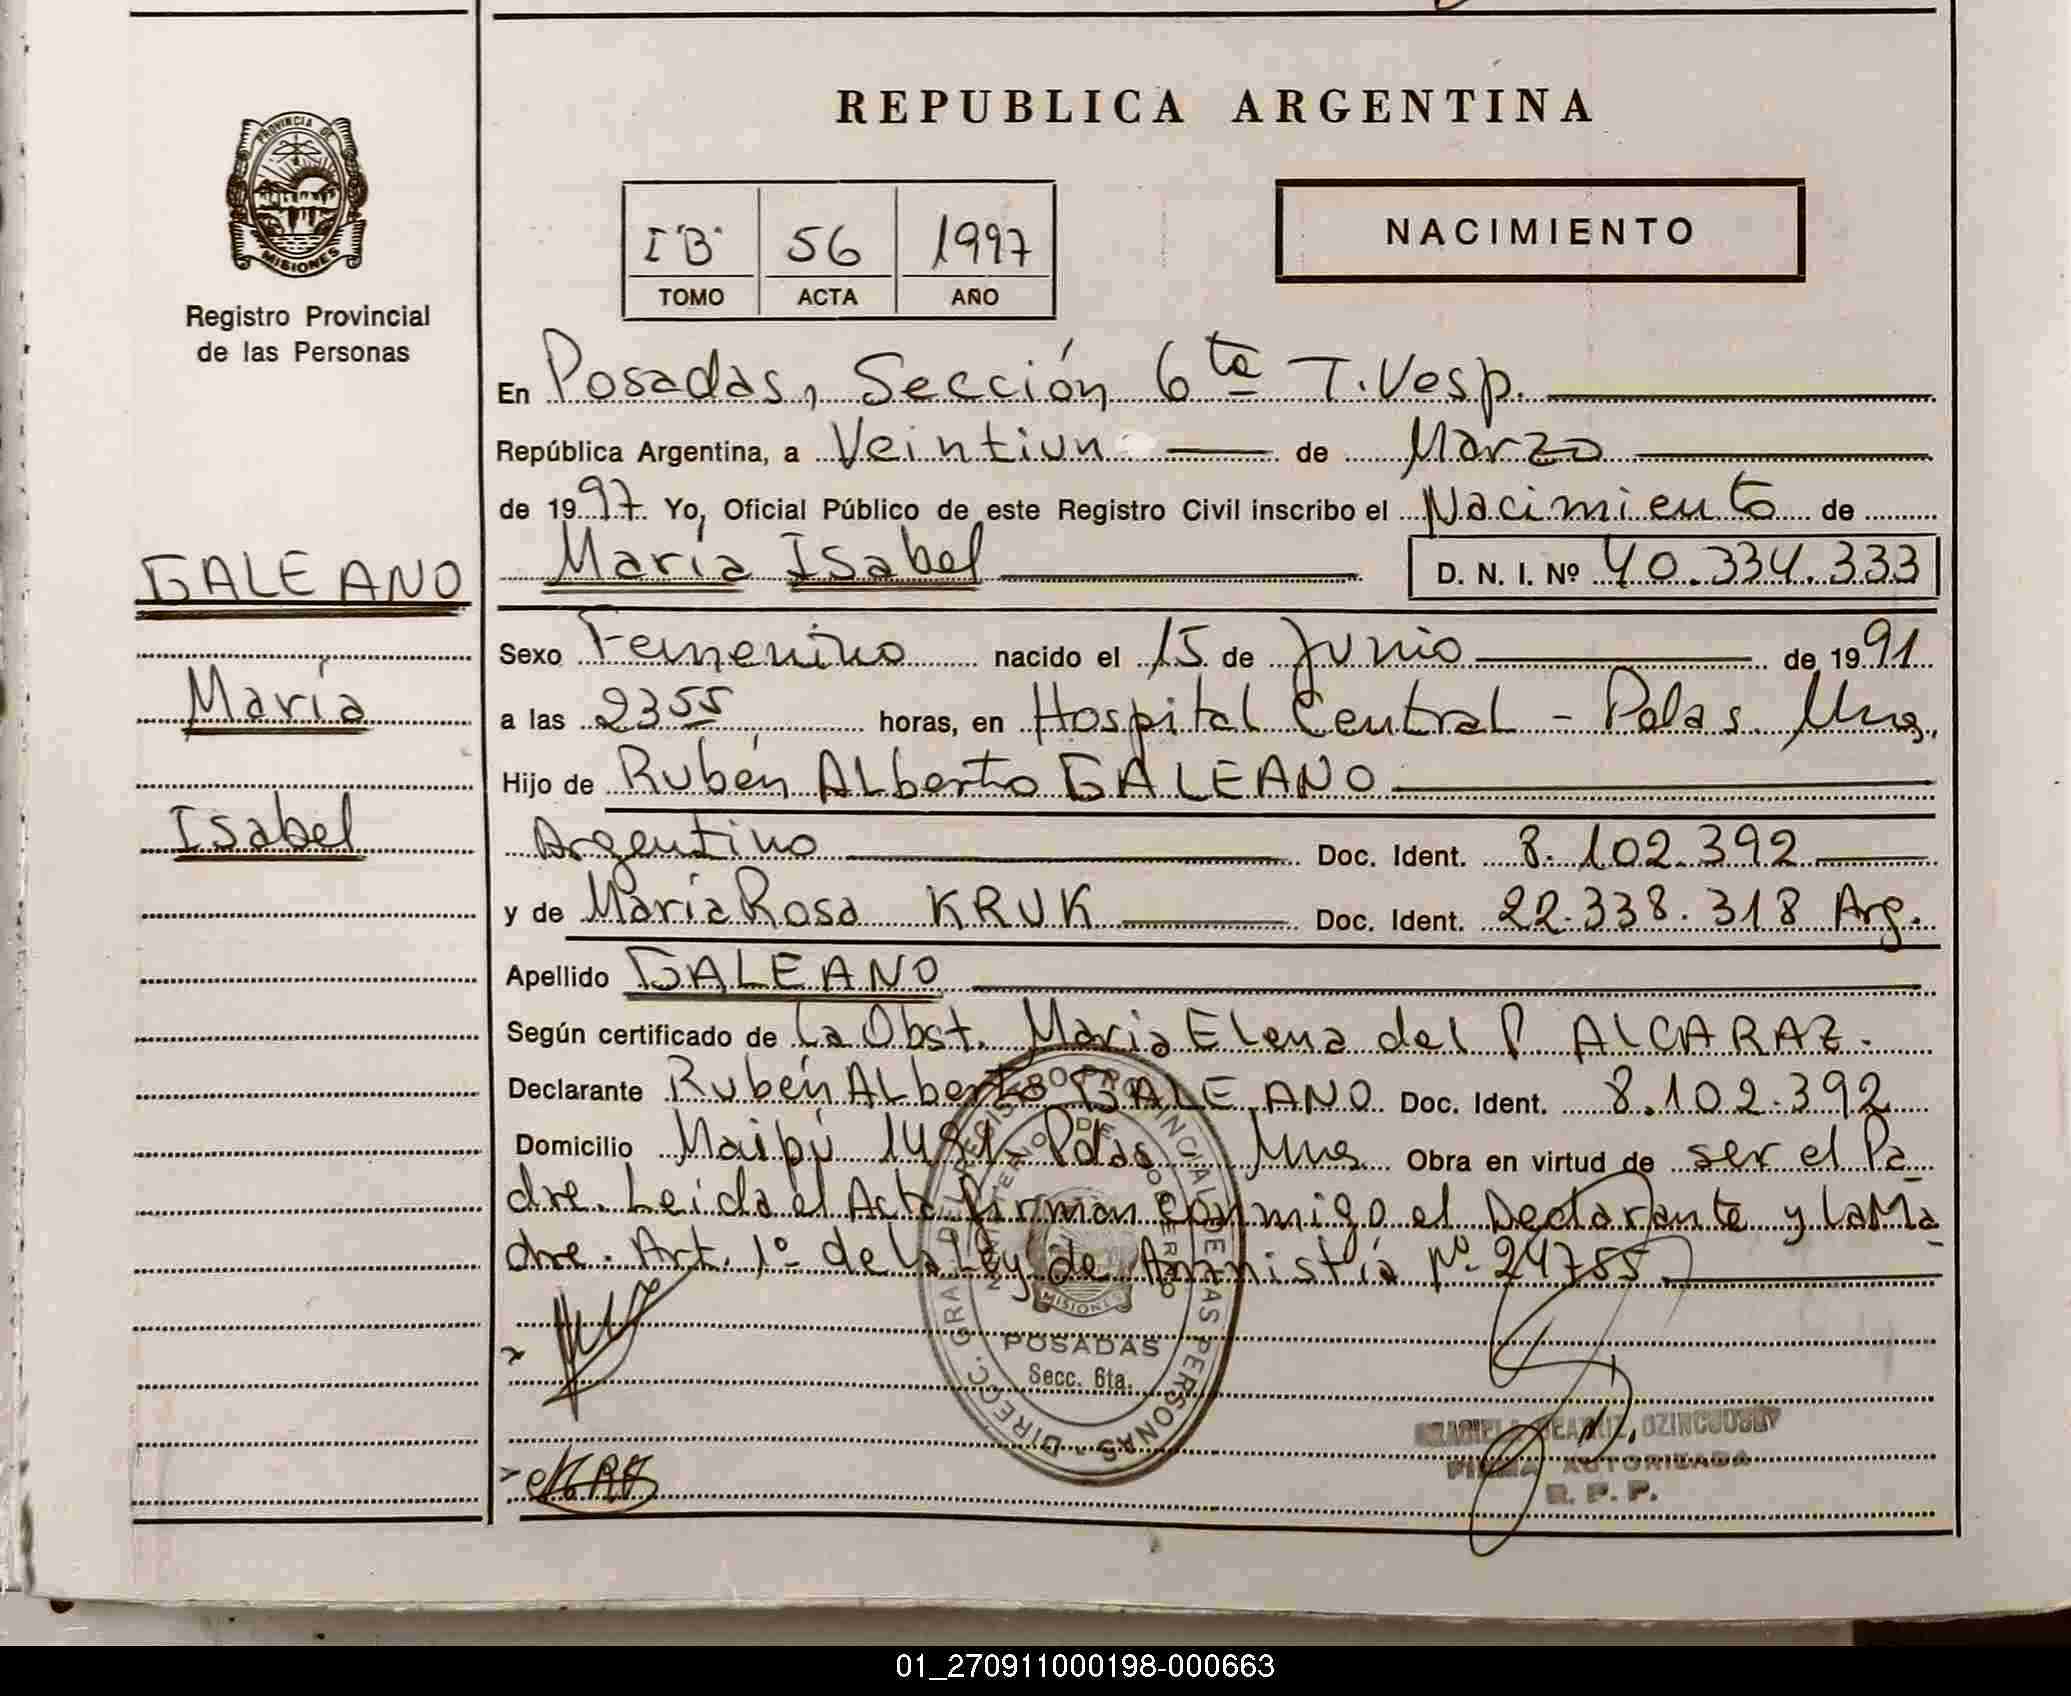 REPUBLICA ARGENTINA
PROVINCIA DE
MISIONES
Registro Provincial
de las Personas
I "B" 56 1997
TOMO ACTA AÑO
NACIMIENTO
En Posadas, Sección 6ta T. Vesp.
República Argentina, a Veintiun de Marzo
de 1997. Yo, Oficial Público de este Registro Civil inscribo el Nacimiento de
María Isabel D. N. I. Nº 40.334.333
GALEANO
María
Isabel
Sexo Femenino nacido el 15 de Junio de 1991
a las 2355 horas, en Hospital Central - Pdas. Mnes.
Hijo de Rubén Alberto GALEANO
Argentino Doc. Ident. 8.102.392
y de María Rosa KRUK Doc. Ident. 22.338.318 Arg.
Apellido GALEANO
Según certificado de la Obst. María Elena del P. ALCARAZ.
Declarante Rubén Alberto GALEANO Doc. Ident. 8.102.392
Domicilio Maipú Pdas Mnes Obra en virtud de ser el Pa
dre. Leída el Acta firman conmigo el Declarante y la Ma
dre. Art. 1º de la Ley de Amnistía Nº 24755
DIRECC. GRAL. DEL REGISTRO PROVINCIAL DE LAS PERSONAS
MINISTERIO DE GOBIERNO
MISIONES
POSADAS
Secc. 6ta.
BEATRIZ
FIRMA AUTORIZADA
R. P. P.
01_270911000198-000663